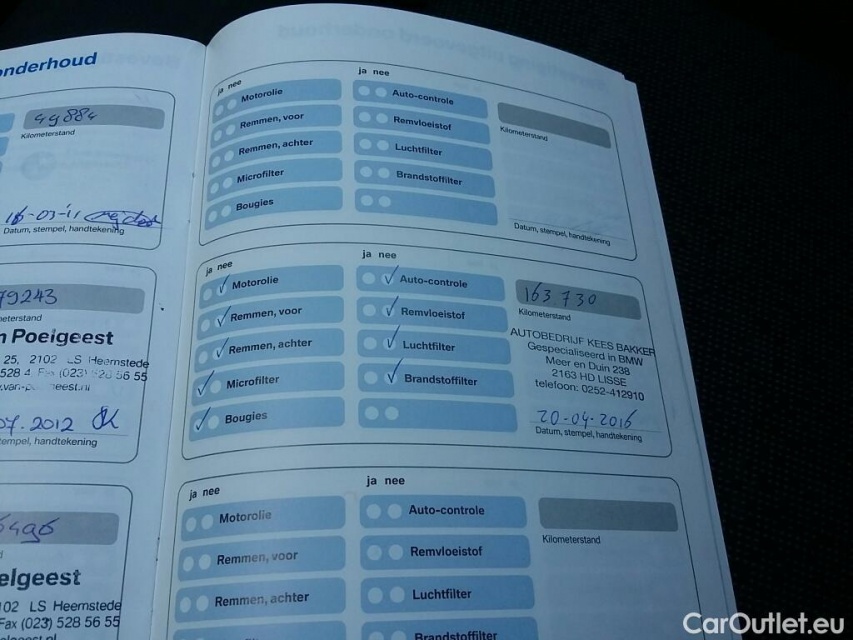 onderhoud
49884
Kilometerstand
16-03-11
Datum, stempel, handtekening
79243
Poelgeest
25, 2102 LS Heemstede
Datum, stempel, handtekening
07.2012
tempel, handtekening
elgeest
02 LS Heemstede
Fax (023) 528 56 55
ja nee
Motorolie
Remmen, voor
Remmen, achter
Microfilter
Bougies
ja nee
Auto-controle
Remvloeistof
Luchtfilter
Brandstoffilter
Kilometerstand
Datum, stempel, handtekening
ja nee
Motorolie
Remmen, voor
Remmen, achter
Microfilter
Bougies
ja nee
Auto-controle
Remvloeistof
Luchtfilter
Brandstoffilter
163 730
Kilometerstand
AUTOBEDRIJF KEES BAKKER
Gespecialiseerd in BMW
Meer en Duin 238
2163 HD LISSE
telefoon: 0252-412910
20-04-2016
Datum, stempel, handtekening
ja nee
Motorolie
Remmen, voor
Remmen, achter
ja nee
Auto-controle
Remvloeistof
Luchtfilter
Brandstoffilter
Kilometerstand
CarOutlet.eu